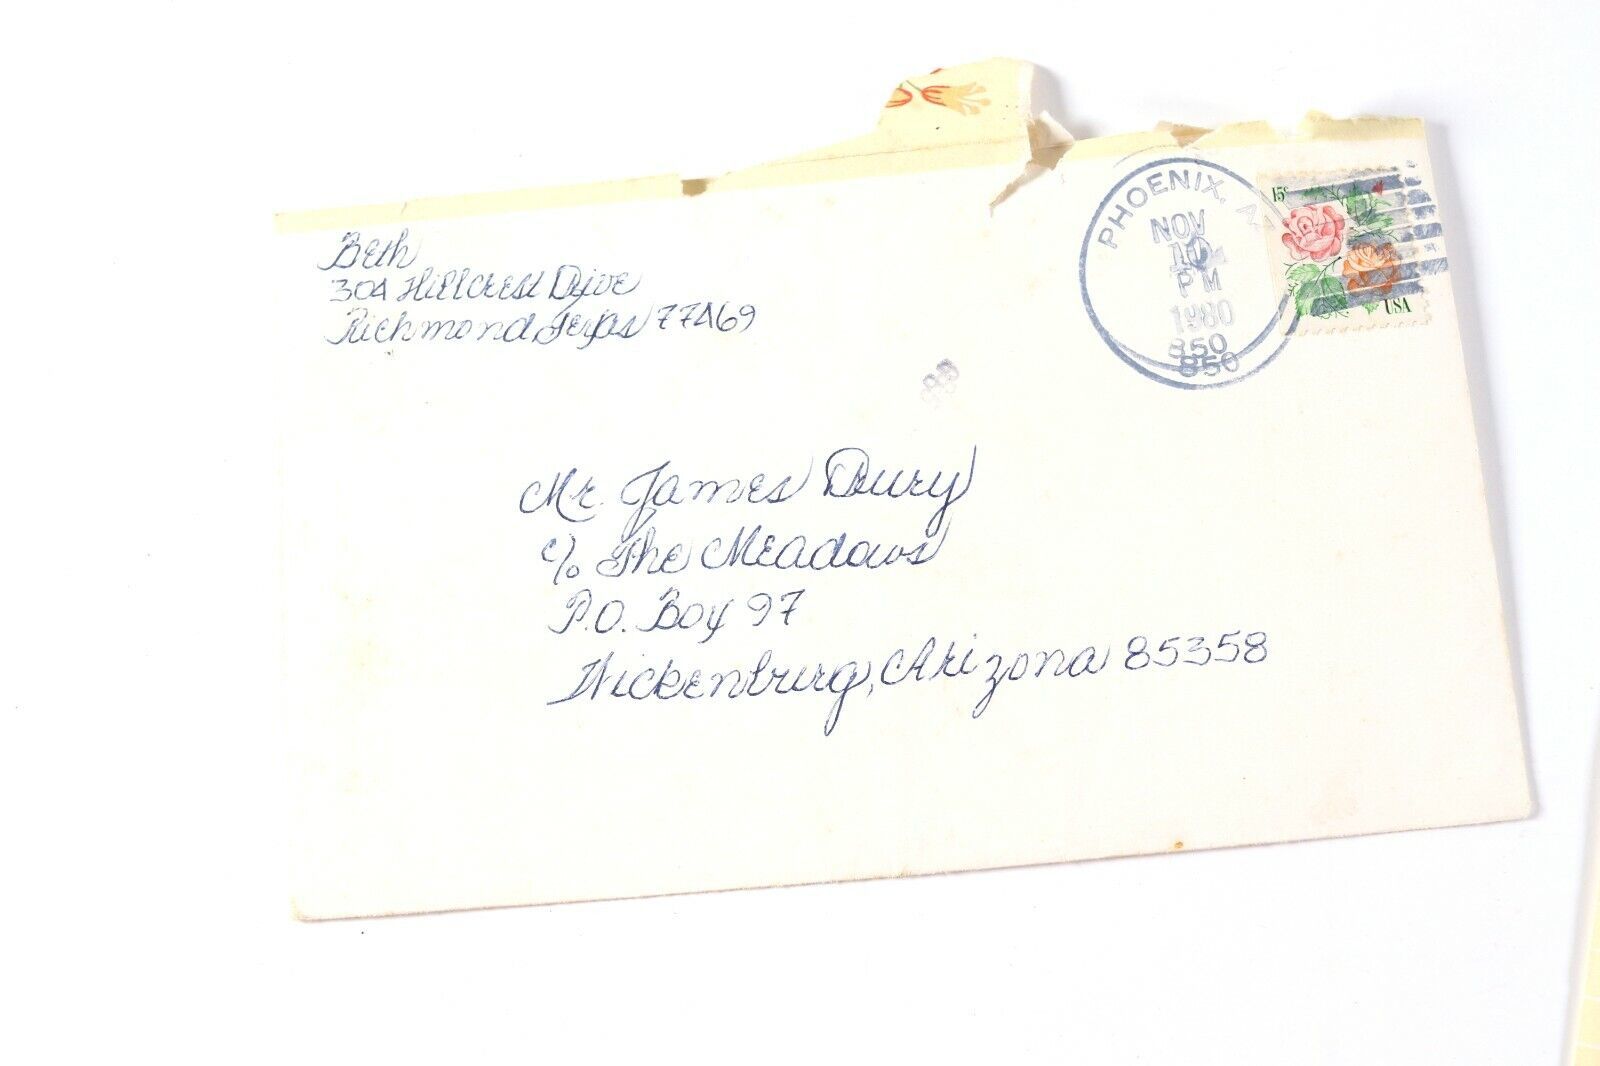 Beth
304 Hillcrest Drive
Richmond, Texas 77469
PHOENIX, A
NOV
10
PM
1980
850
850
15c
USA
Mr. James Drury
c/o The Meadows
P.O. Box 97
Wickenburg, Arizona 85358